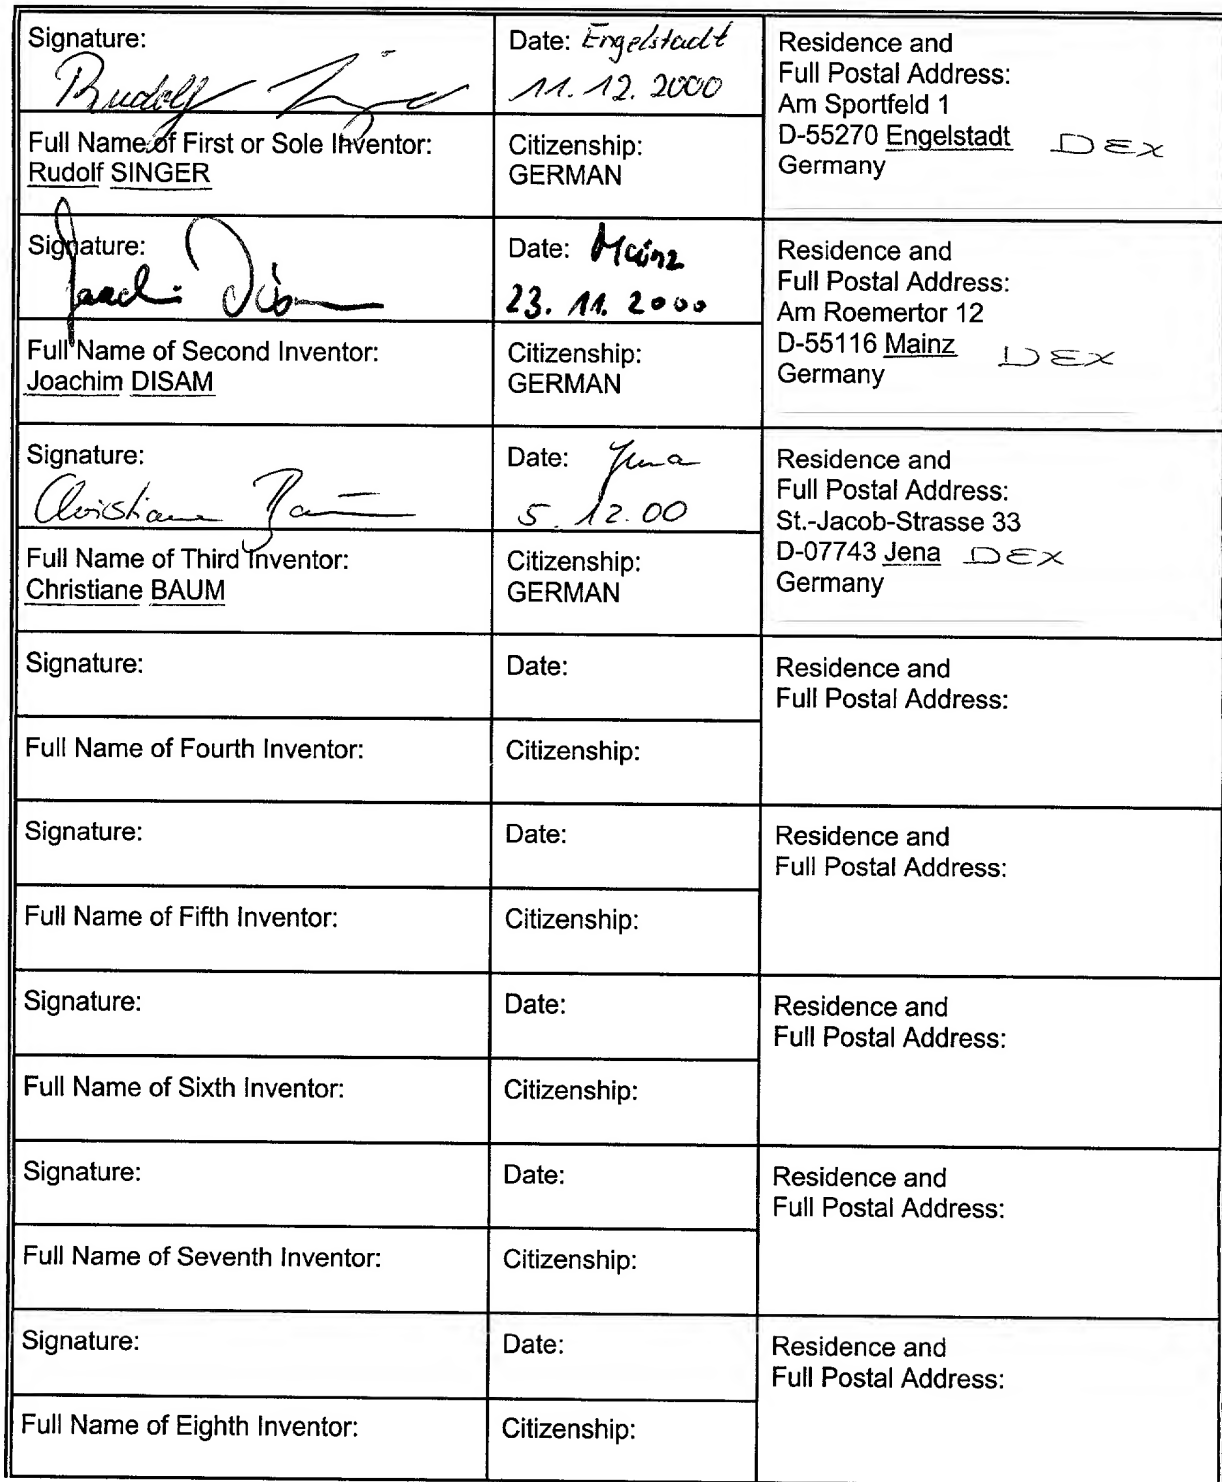 Signature:
Rudolf Singer
Date: Engelstadt
11.12.2000
Residence and
Full Postal Address:
Am Sportfeld 1
D-55270 Engelstadt DEX
Germany
Full Name of First or Sole Inventor:
Rudolf SINGER
Citizenship:
GERMAN
Signature:
Joachim Disam
Date: Mainz
23. 11. 2000
Residence and
Full Postal Address:
Am Roemertor 12
D-55116 Mainz DEX
Germany
Full Name of Second Inventor:
Joachim DISAM
Citizenship:
GERMAN
Signature:
Christiane Baum
Date: Jena
5.12.00
Residence and
Full Postal Address:
St.-Jacob-Strasse 33
D-07743 Jena DEX
Germany
Full Name of Third Inventor:
Christiane BAUM
Citizenship:
GERMAN
Signature:
Date:
Residence and
Full Postal Address:
Full Name of Fourth Inventor:
Citizenship:
Signature:
Date:
Residence and
Full Postal Address:
Full Name of Fifth Inventor:
Citizenship:
Signature:
Date:
Residence and
Full Postal Address:
Full Name of Sixth Inventor:
Citizenship:
Signature:
Date:
Residence and
Full Postal Address:
Full Name of Seventh Inventor:
Citizenship:
Signature:
Date:
Residence and
Full Postal Address:
Full Name of Eighth Inventor:
Citizenship: